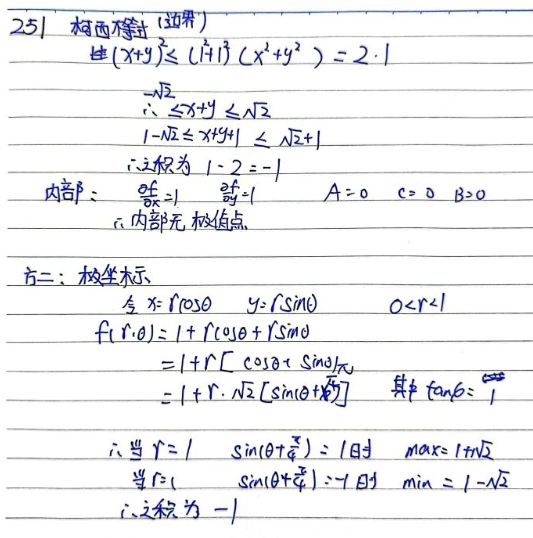 251 柯西不等式 (边界)
由(x+y)²≤ (1²+1²) (x²+y²) = 2·1
∴ -√2 ≤x+y ≤√2
1-√2 ≤ x+y+1 ≤ √2+1
∴之积为 1-2=-1
内部: ∂f/∂x=1 ∂f/∂y=1 A=0 C=0 B=0
∴内部无极值点
方二: 极坐标
令 x=rcosθ y=rsinθ 0<r<1
f(r·θ)=1+rcosθ+rsinθ
=1+r[cosθ+sinθ]
=1+r·√2[sin(θ+π/4)] 其中 tanφ= 1
∴当r=1 sin(θ+π/4)=1时 max=1+√2
当r=1 sin(θ+π/4)=-1时 min=1-√2
∴之积为 -1